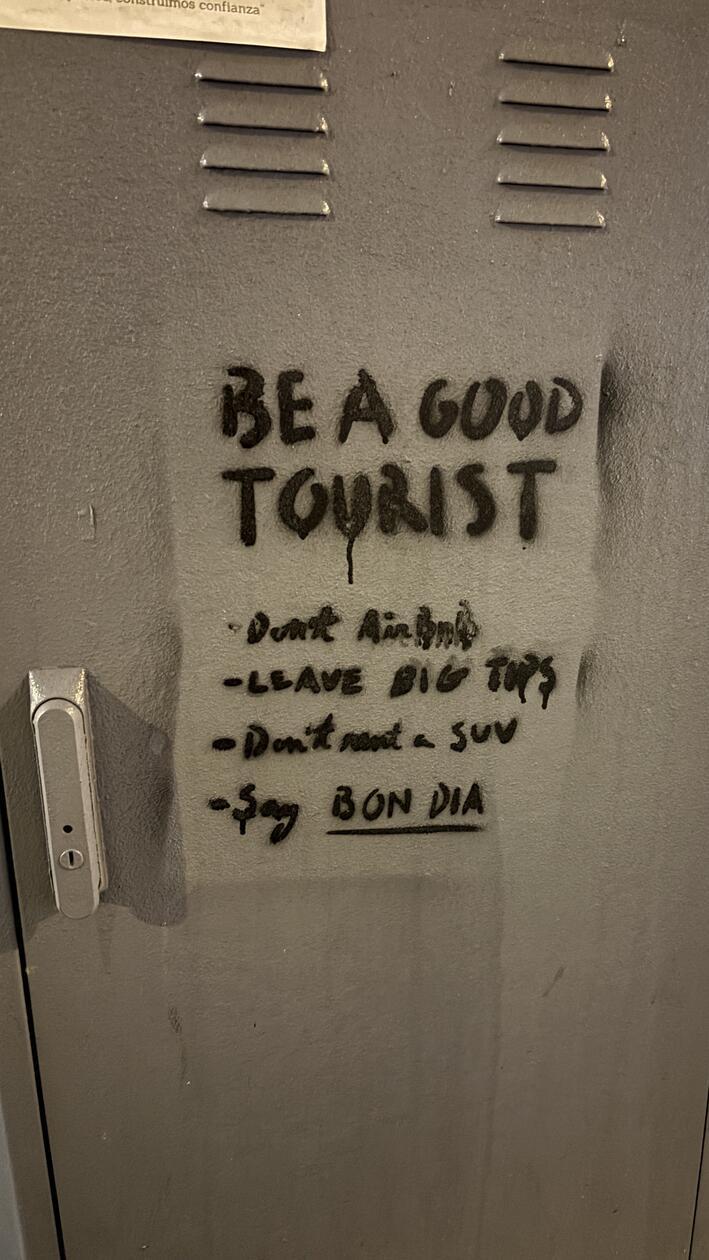 construimos confianza"
BE A GOOD
TOURIST
- Don't AirBnb
- LEAVE BIG TIPS
- Don't rent a SUV
- Say BON DIA